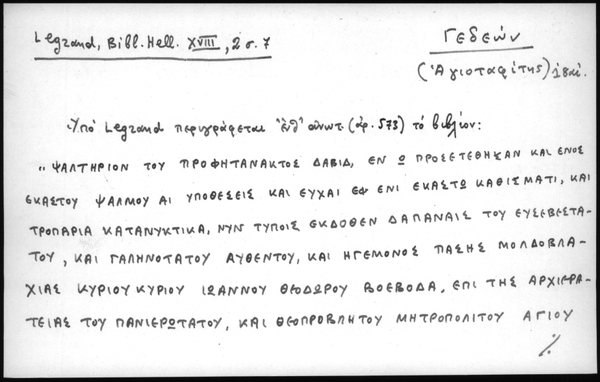 Legrand, Bibl. Hell. XVIII, 2 σ. 7
ΓΕΔΕΩΝ
(Ἁγιοταφίτης) 18 αἰ.
Ὑπὸ Legrand περιγράφεται ἐνθ' ἀνωτ. (ἀρ. 573) τὸ βιβλίον:
"ΨΑΛΤΗΡΙΟΝ ΤΟΥ ΠΡΟΦΗΤΑΝΑΚΤΟΣ ΔΑΒΙΔ, ΕΝ Ω ΠΡΟΣΕΤΕΘΗΣΑΝ ΚΑΙ ΕΝΟΣ
ΕΚΑΣΤΟΥ ΨΑΛΜΟΥ ΑΙ ΥΠΟΘΕΣΕΙΣ ΚΑΙ ΕΥΧΑΙ ΕΦ ΕΝΙ ΕΚΑΣΤΩ ΚΑΘΙΣΜΑΤΙ, ΚΑΙ
ΤΡΟΠΑΡΙΑ ΚΑΤΑΝΥΚΤΙΚΑ, ΝΥΝ ΤΥΠΟΙΣ ΕΚΔΟΘΕΝ ΔΑΠΑΝΑΙΣ ΤΟΥ ΕΥΣΕΒΕΣΤΑ-
ΤΟΥ, ΚΑΙ ΓΑΛΗΝΟΤΑΤΟΥ ΑΥΘΕΝΤΟΥ, ΚΑΙ ΗΓΕΜΟΝΟΣ ΠΑΣΗΣ ΜΟΛΔΟΒΛΑ-
ΧΙΑΣ ΚΥΡΙΟΥ ΚΥΡΙΟΥ ΙΩΑΝΝΟΥ ΘΕΟΔΩΡΟΥ ΒΟΕΒΟΔΑ, ΕΠΙ ΤΗΣ ΑΡΧΙΕΡΑ-
ΤΕΙΑΣ ΤΟΥ ΠΑΝΙΕΡΩΤΑΤΟΥ, ΚΑΙ ΘΕΟΠΡΟΒΛΗΤΟΥ ΜΗΤΡΟΠΟΛΙΤΟΥ ΑΓΙΟΥ
./.